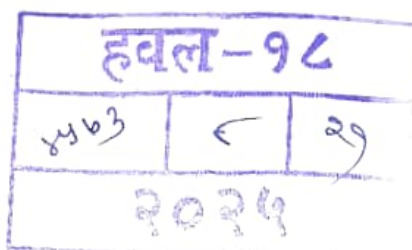 हवल-१८
४५७३ ८ २१
२०२५